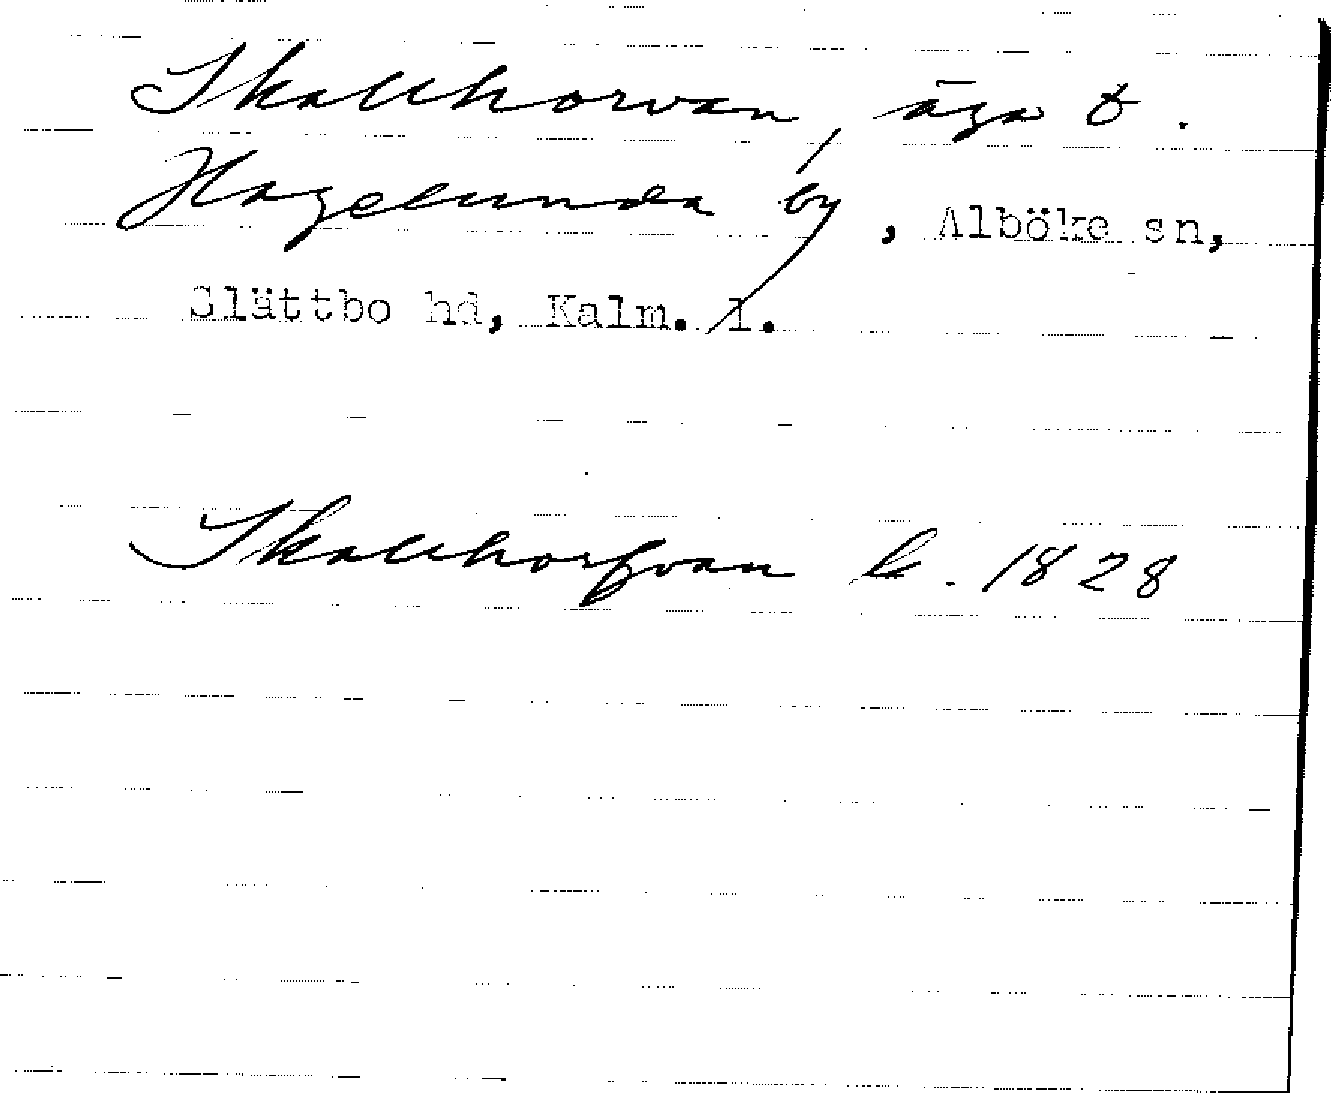 Skallhorvan, äga t.
Hagelunda by, Alböke sn,
Slättbo hd, Kalm. l.
Skallhorfvan k. 1828